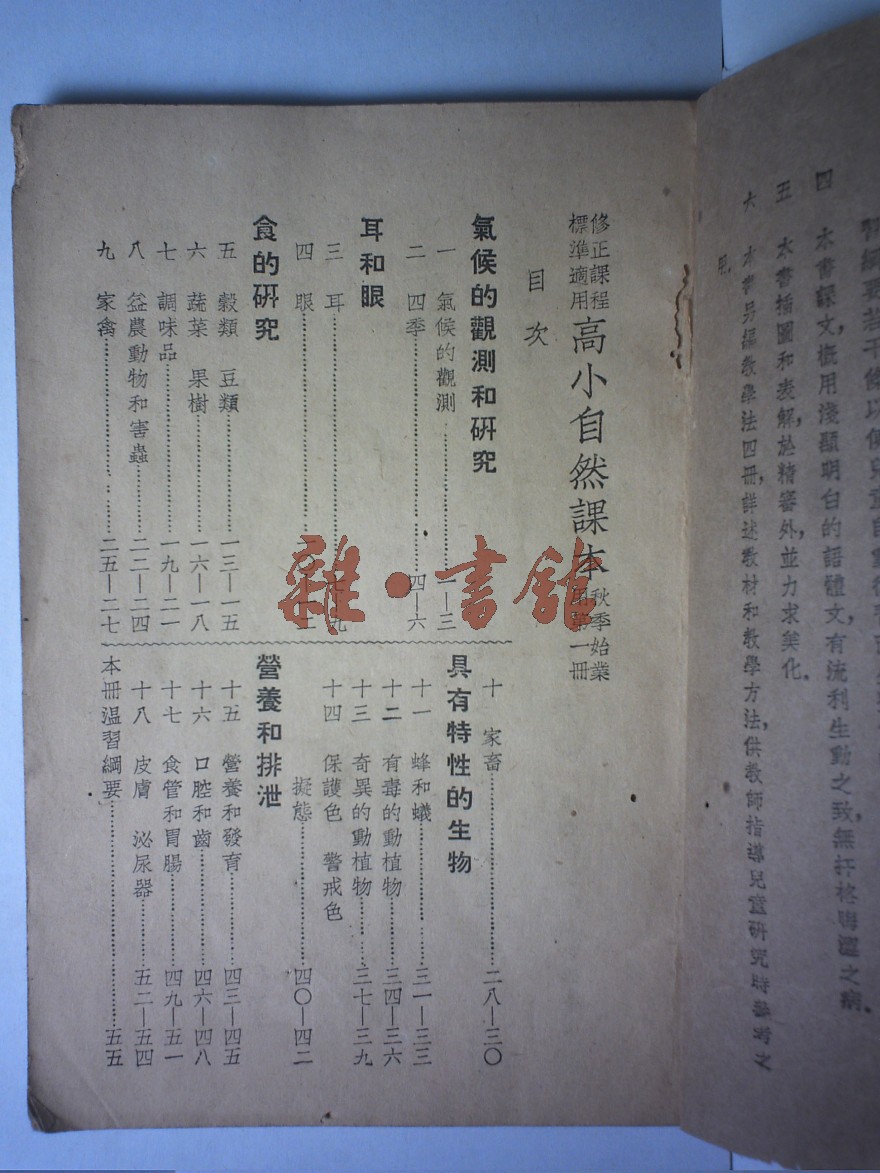 四 本書課文，概用淺顯明白的語體文，有流利生動之致，無扞格晦澀之病。
五 本書插圖和表解於精審外，並力求美化。
六 本書另編教學法四冊，詳述教材和教學方法，供教師指導兒童研究時參考之
用。
修正課程
標準適用
高小自然課本
秋季始業
第一冊
目次
氣候的觀測和研究
一 氣候的觀測……一—三
二 四季……四—六
耳和眼
三 耳……
四 眼……
食的研究
五 穀類 豆類……一三—一五
六 蔬菜 果樹……一六—一八
七 調味品……一九—二一
八 益農動物和害蟲……二二—二四
九 家禽……二五—二七
十 家畜……二八—三〇
具有特性的生物
十一 蜂和蟻……三一—三三
十二 有毒的動植物……三四—三六
十三 奇異的動植物……三七—三九
十四 保護色 警戒色
擬態……四〇—四二
營養和排泄
十五 營養和發育……四三—四五
十六 口腔和齒……四六—四八
十七 食管和胃腸……四九—五一
十八 皮膚 泌尿器……五二—五四
本冊温習綱要……五五
雜·書館